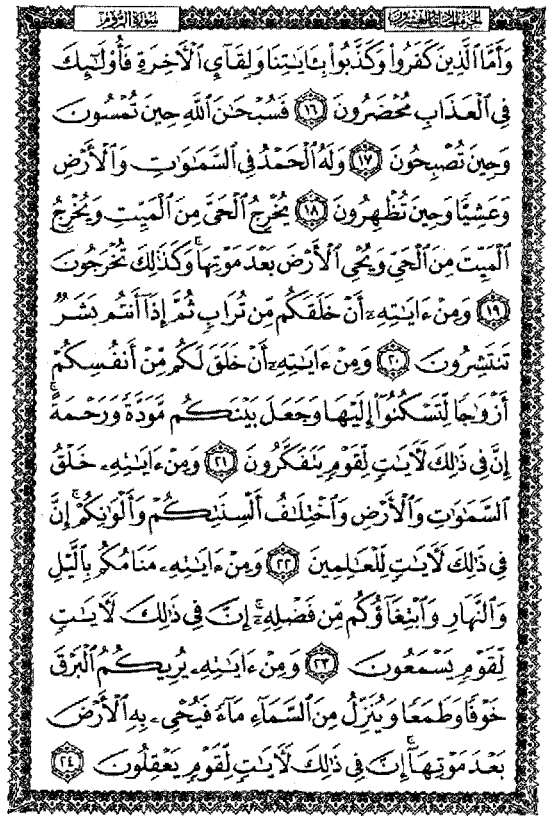 الجزء الحادي والعشرون سورة الروم
وَأَمَّا الَّذِينَ كَفَرُوا وَكَذَّبُوا بِـَٔايَـٰتِنَا وَلِقَآئِ الْأَخِرَةِ فَأُو۟لَـٰٓئِكَ
فِى الْعَذَابِ مُحْضَرُونَ ١٦ فَسُبْحَـٰنَ اللَّهِ حِينَ تُمْسُونَ
وَحِينَ تُصْبِحُونَ ١٧ وَلَهُ الْحَمْدُ فِى السَّمَـٰوَٰتِ وَالْأَرْضِ
وَعَشِيًّا وَحِينَ تُظْهِرُونَ ١٨ يُخْرِجُ الْحَىَّ مِنَ الْمَيِّتِ وَيُخْرِجُ
الْمَيِّتَ مِنَ الْحَىِّ وَيُحْىِ الْأَرْضَ بَعْدَ مَوْتِهَا ۚ وَكَذَٰلِكَ تُخْرَجُونَ
١٩ وَمِنْ ءَايَـٰتِهِۦٓ أَنْ خَلَقَكُم مِّن تُرَابٍ ثُمَّ إِذَآ أَنتُم بَشَرٌ
تَنتَشِرُونَ ٢٠ وَمِنْ ءَايَـٰتِهِۦٓ أَنْ خَلَقَ لَكُم مِّنْ أَنفُسِكُمْ
أَزْوَٰجًا لِّتَسْكُنُوٓا إِلَيْهَا وَجَعَلَ بَيْنَكُم مَّوَدَّةً وَرَحْمَةً ۚ
إِنَّ فِى ذَٰلِكَ لَأَيَـٰتٍ لِّقَوْمٍ يَتَفَكَّرُونَ ٢١ وَمِنْ ءَايَـٰتِهِۦ خَلْقُ
السَّمَـٰوَٰتِ وَالْأَرْضِ وَاخْتِلَـٰفُ أَلْسِنَتِكُمْ وَأَلْوَٰنِكُمْ ۚ إِنَّ
فِى ذَٰلِكَ لَأَيَـٰتٍ لِّلْعَـٰلِمِينَ ٢٢ وَمِنْ ءَايَـٰتِهِۦ مَنَامُكُم بِالَّيْلِ
وَالنَّهَارِ وَابْتِغَآؤُكُم مِّن فَضْلِهِۦٓ ۚ إِنَّ فِى ذَٰلِكَ لَأَيَـٰتٍ
لِّقَوْمٍ يَسْمَعُونَ ٢٣ وَمِنْ ءَايَـٰتِهِۦ يُرِيكُمُ الْبَرْقَ
خَوْفًا وَطَمَعًا وَيُنَزِّلُ مِنَ السَّمَآءِ مَآءً فَيُحْىِۦ بِهِ الْأَرْضَ
بَعْدَ مَوْتِهَآ ۚ إِنَّ فِى ذَٰلِكَ لَأَيَـٰتٍ لِّقَوْمٍ يَعْقِلُونَ ٢٤